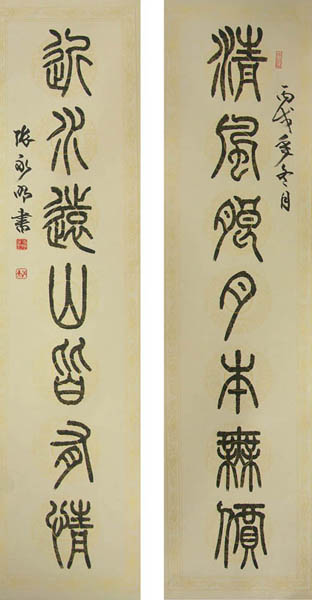 清風朗月本無價
丙戌年冬月
近水遠山皆有情
永明書